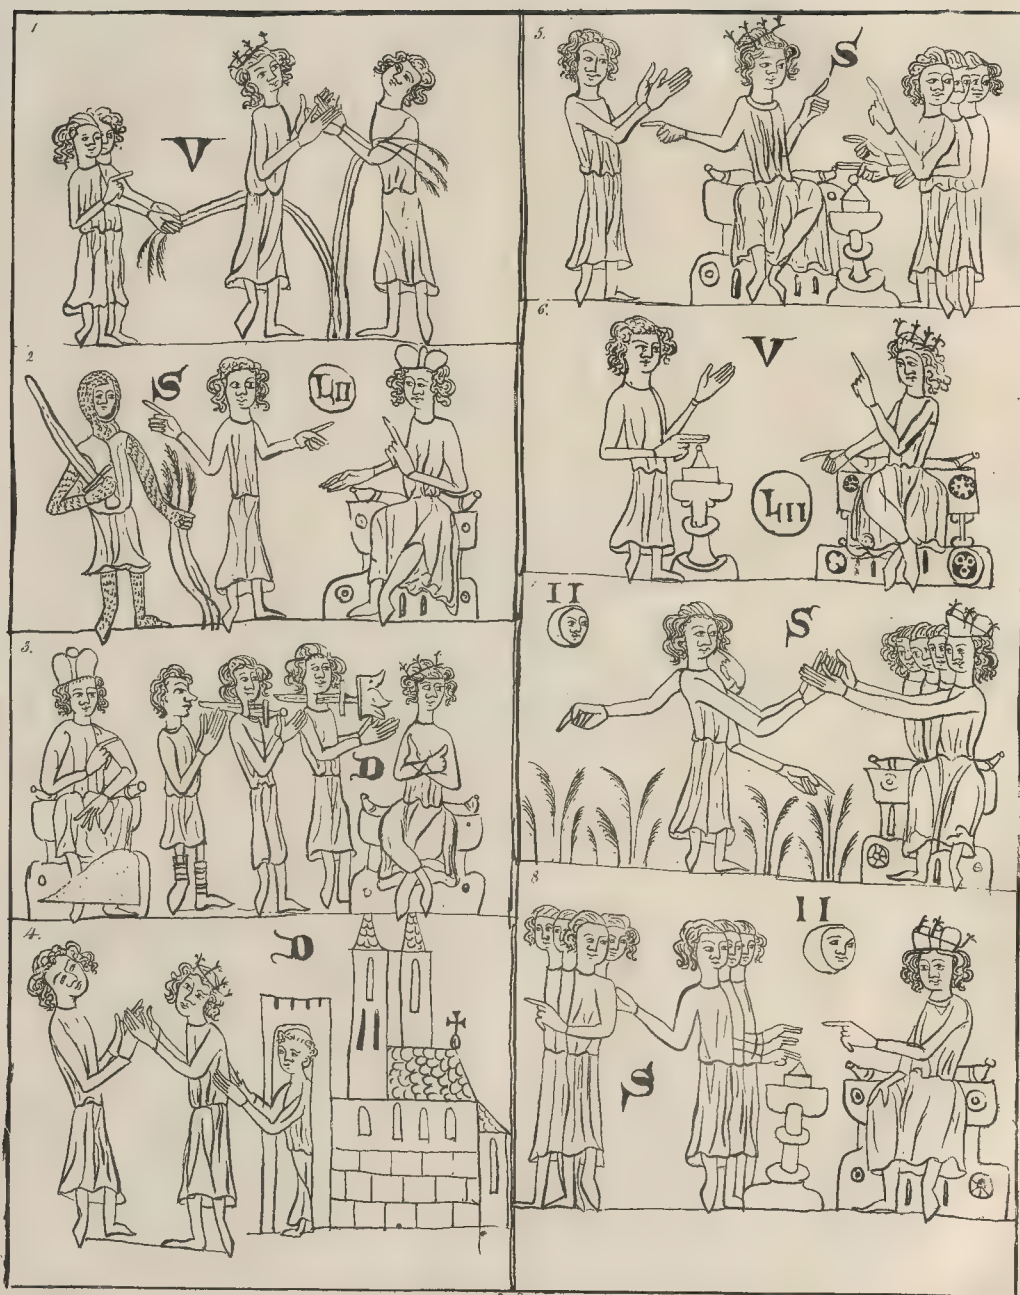 1
V
2
S
LII
3.
D
4.
D
5.
S
6.
V
LII
II
S
8
II
S